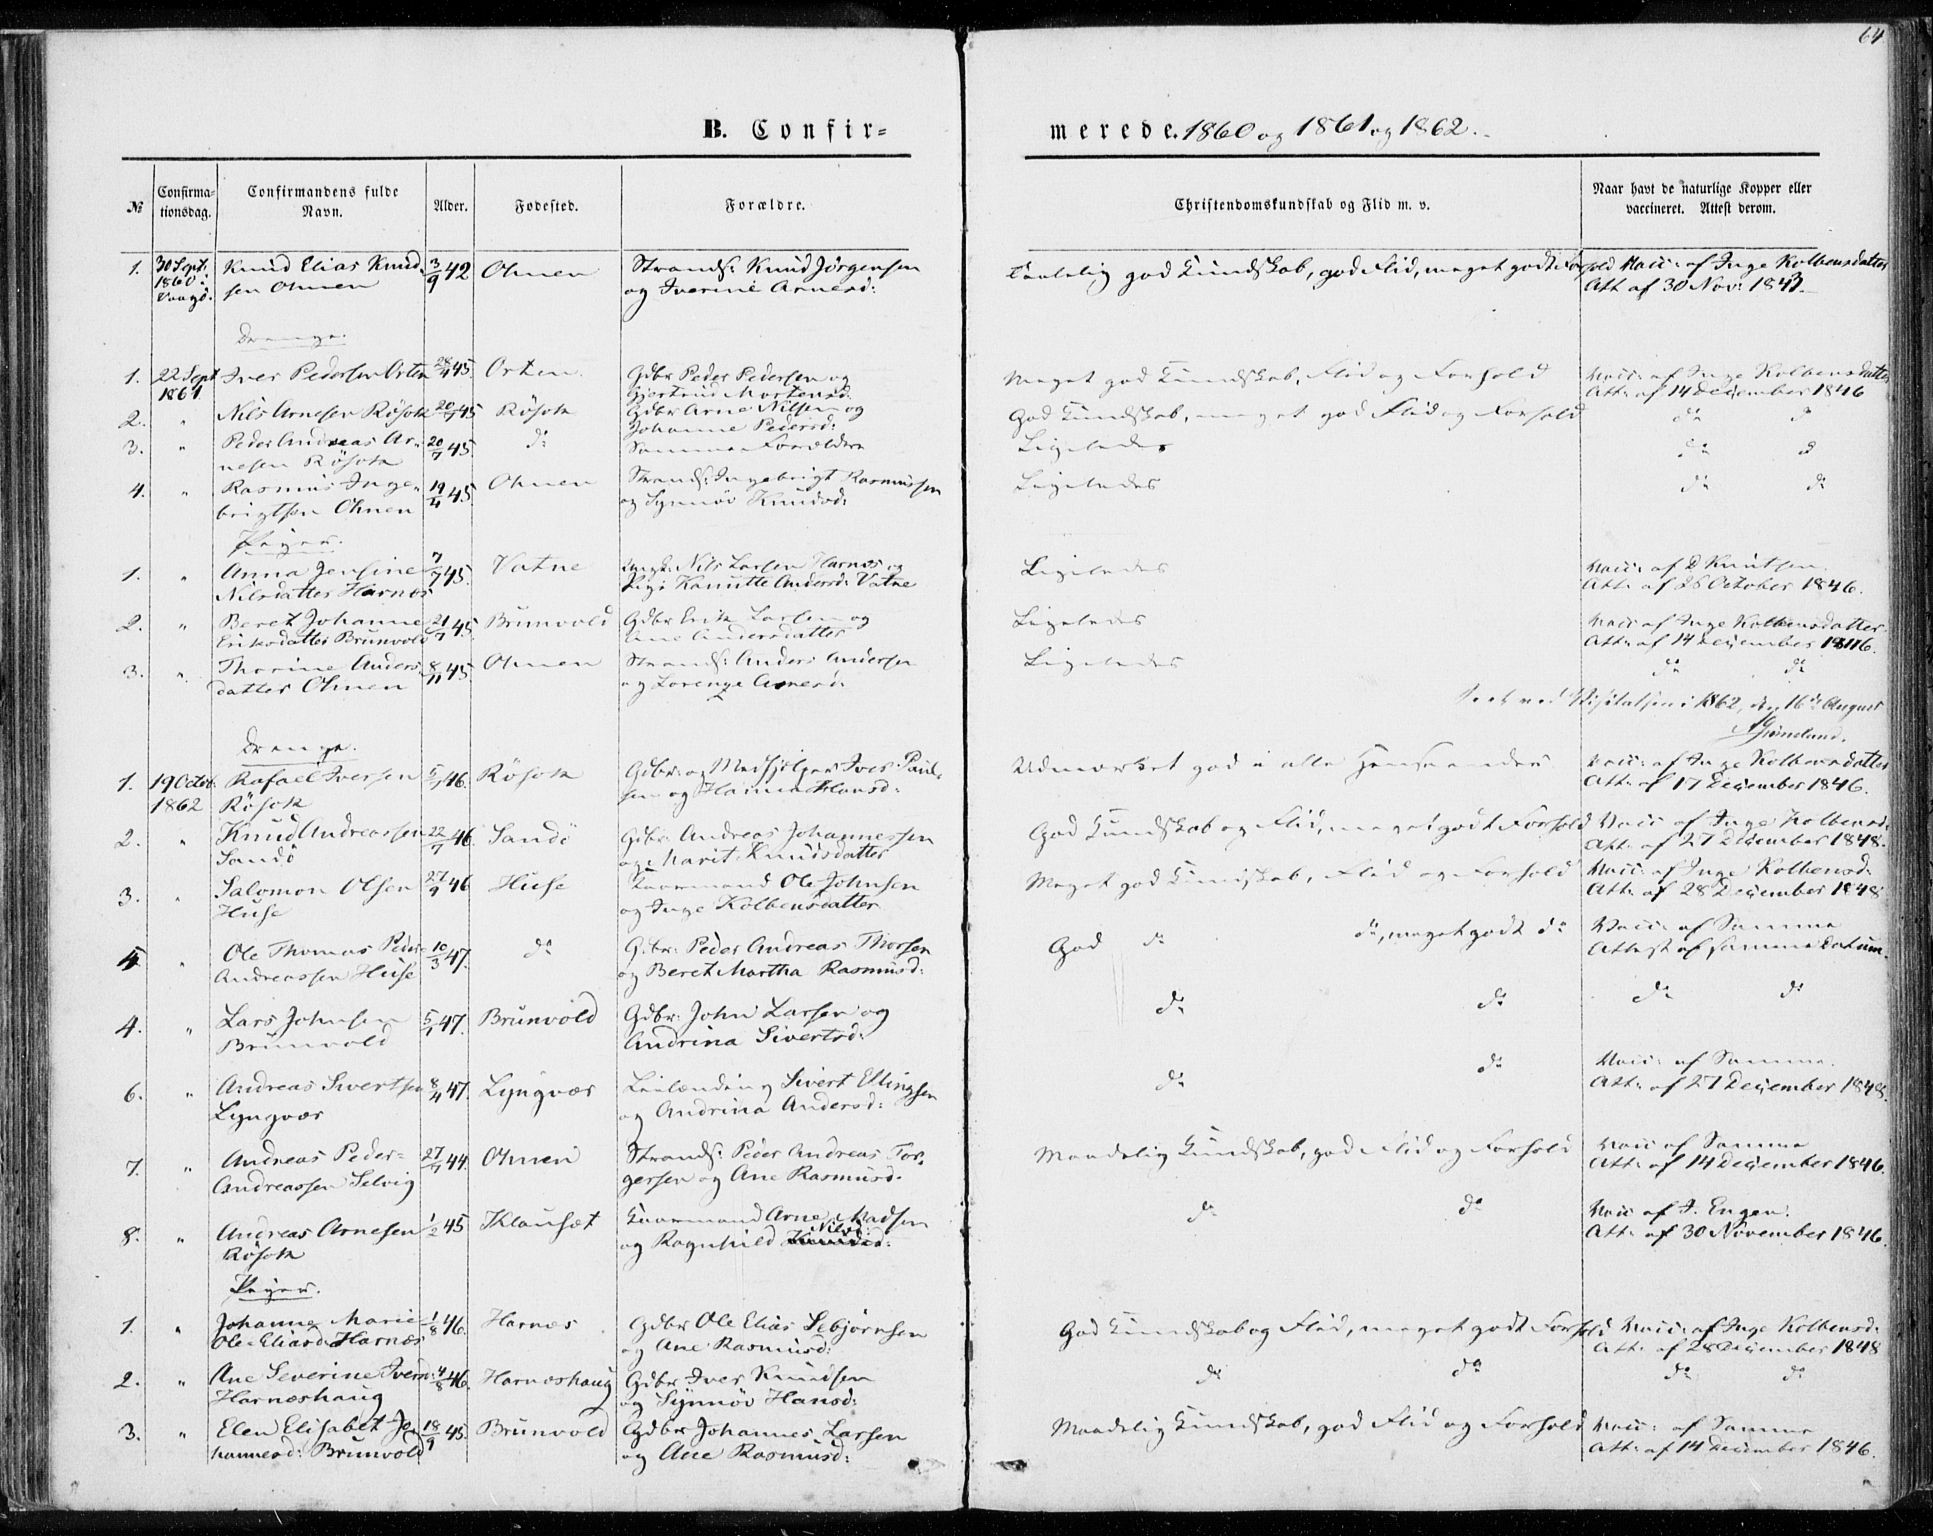 64
B. Confirmerede. 1860 og 1861 og 1862.
№ Confirmationsdag. Confirmandens fulde Navn. Alder. Fødested. Forældre. Christendomskundskab og Flid m. v. Naar havt de naturlige Kopper eller vaccineret. Attest derom.
1. 30 Sept. Knud Elias Knud- 3/9 42 Ohnen Strands: Knud Jörgensen god Kundskab, god Flid, meget godt Forhold Vacc: af Inge Kolbensdatter
1860. sen Ohnen og Iverine Arnesd: Att. af 30 Nov: 1843.
Drenge.
1. 22 Sept Iver Pedersen Orten 45. Orten. Gdbr Peder Pedersen og Meget god Kundskab, Flid og Forhold Vacc: af Inge Kolbensdatter
1861 Gjertrud Mortensd: Att: af 14 December 1846
2. " Nils Arnesen Rösok 45 Rösok Gdbr Arne Nilsen og God Kundskab, meget god Flid og Forhold do do
Johanne Pedersd:
3. " Peder Andreas Ar- 20/7 45. do Samme Forældre Ligeledes do do
nesen Rösok
4. " Rasmus Inge- 19/4 45. Ohnen Strands: Ingebrigt Rasmussen Ligeledes do do
brigtsen Ohnen og Synnöv Knudsd:
Piger.
1. " Anna Jensine 7/7 45. Vatne Ungk: Nils Larsen Harnes og Ligeledes Vacc: af D Knutsen.
Nilsdatter Harnes Pige Kanutte Andersd: Vatne Att: af 26 October 1846.
2. " Beret Johanne 21/7 45. Brunvold Gdbr Erik Larsen og Ligeledes Vacc af Inge Kolbensdatter
Eriksdatter Brunvold Ane Andersdatter Att: af 14 December 1846.
3. " Thorine Anders- 8/11 45. Ohnen Strands: Anders Andersen Ligeledes do do
datter Ohnen og Lorense Arnesd:
Seet ved Visitatsen i 1862, den 16de August
Drenge.
1. 19 Octob: Rafael Iversen 46. Rösok Gdbr: og Medhjelper Iver Paul- Udmærket god i alle Henseender Vacc: af Inge Kolbensdatter
1862 Rösok sen og Hanna Hansd: Att: af 17 December 1846.
2. " Knud Andreassen 22/7 46. Sandö Gdbr: Andreas Johannessen God Kundskab og Flid, meget godt Forhold Vacc af Inge Kolbensd:
Sandö og Marit Knudsdatter Att: af 27 December 1848.
3. " Salomon Olsen 27/9 46 Huse Kaarmand Ole Johnsen Meget god Kundskab, Flid og Forhold Vacc: af Inge Kolbensd:
Huse og Inge Kolbensdatter Att: af 28 December 1848
Ole Thomas Peder- 10/3 47. do Gdbr: Peder Andreas Thorsen God do do, meget godt do Vacc: af Samme
Andreassen Huse og Beret Martha Rasmusd: Attest af samme Datum.
4. " Lars Johnsen 5/1 47. Brunvold Gdbr: John Larsen og do do do do
Brunvold Andrina Sivertsd:
6. " Andreas Sivertsen 8/4 47. Lyngvær Leilænding Sivert Ellingsen do do Vacc: af Samme.
Lyngvær og Andrina Andersd: Att: af 27 December 1848.
7. " Andreas Peder- 44. Ohnen Strands: Peder Andreas Tor- Maadelig Kundskab, god Flid og Forhold Vacc af Samme
Andreassen Selvig gersen og Ane Rasmusd. Att: af 14 December 1846.
8. " Andreas Arnesen 1/2 45 Klauset Kaarmand Arne Madsen do do Vacc af I. Engen.
Rösok og Ragnhild Nilsd: Att: af 30 November 1846.
Piger.
1. " Johanne Marie 1/8 46. Harnes Gdbr Ole Elias Sebjörnsen God Kundskab og Flid, meget godt Forhold Vacc: af Inge Kolbensd:
Ole-Eliasd: Harnes og Ane Rasmusd: Att: af 28 December 1848
2. " Ane Severine Iversd: 4/8 46. Harneshaug Gdbr Iver Knudsen do do do do
Harneshaug og Synnöv Hansd:
3. " Elen Elisabet Jo- 18/9 45. Brunvold Gdbr Johannes Larsen Maadelig Kundskab, god Flid og Forhold Vacc: af Samme
hannesd: Brunvold og Ane Rasmusd: Att: af 14 December 1846.